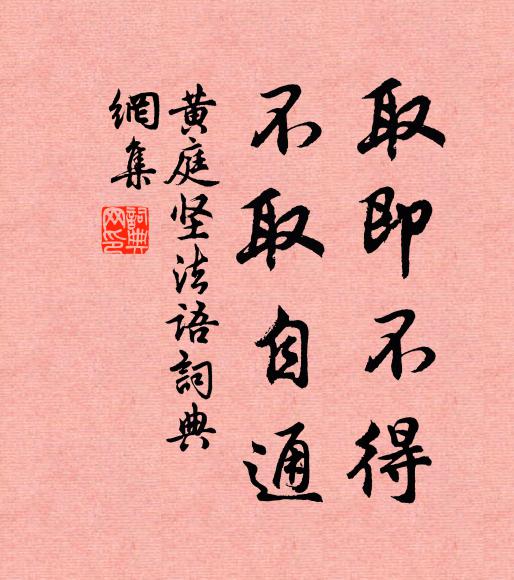 取即不得
不取自通
黄庭坚法语詞典
網集
詞典
网印